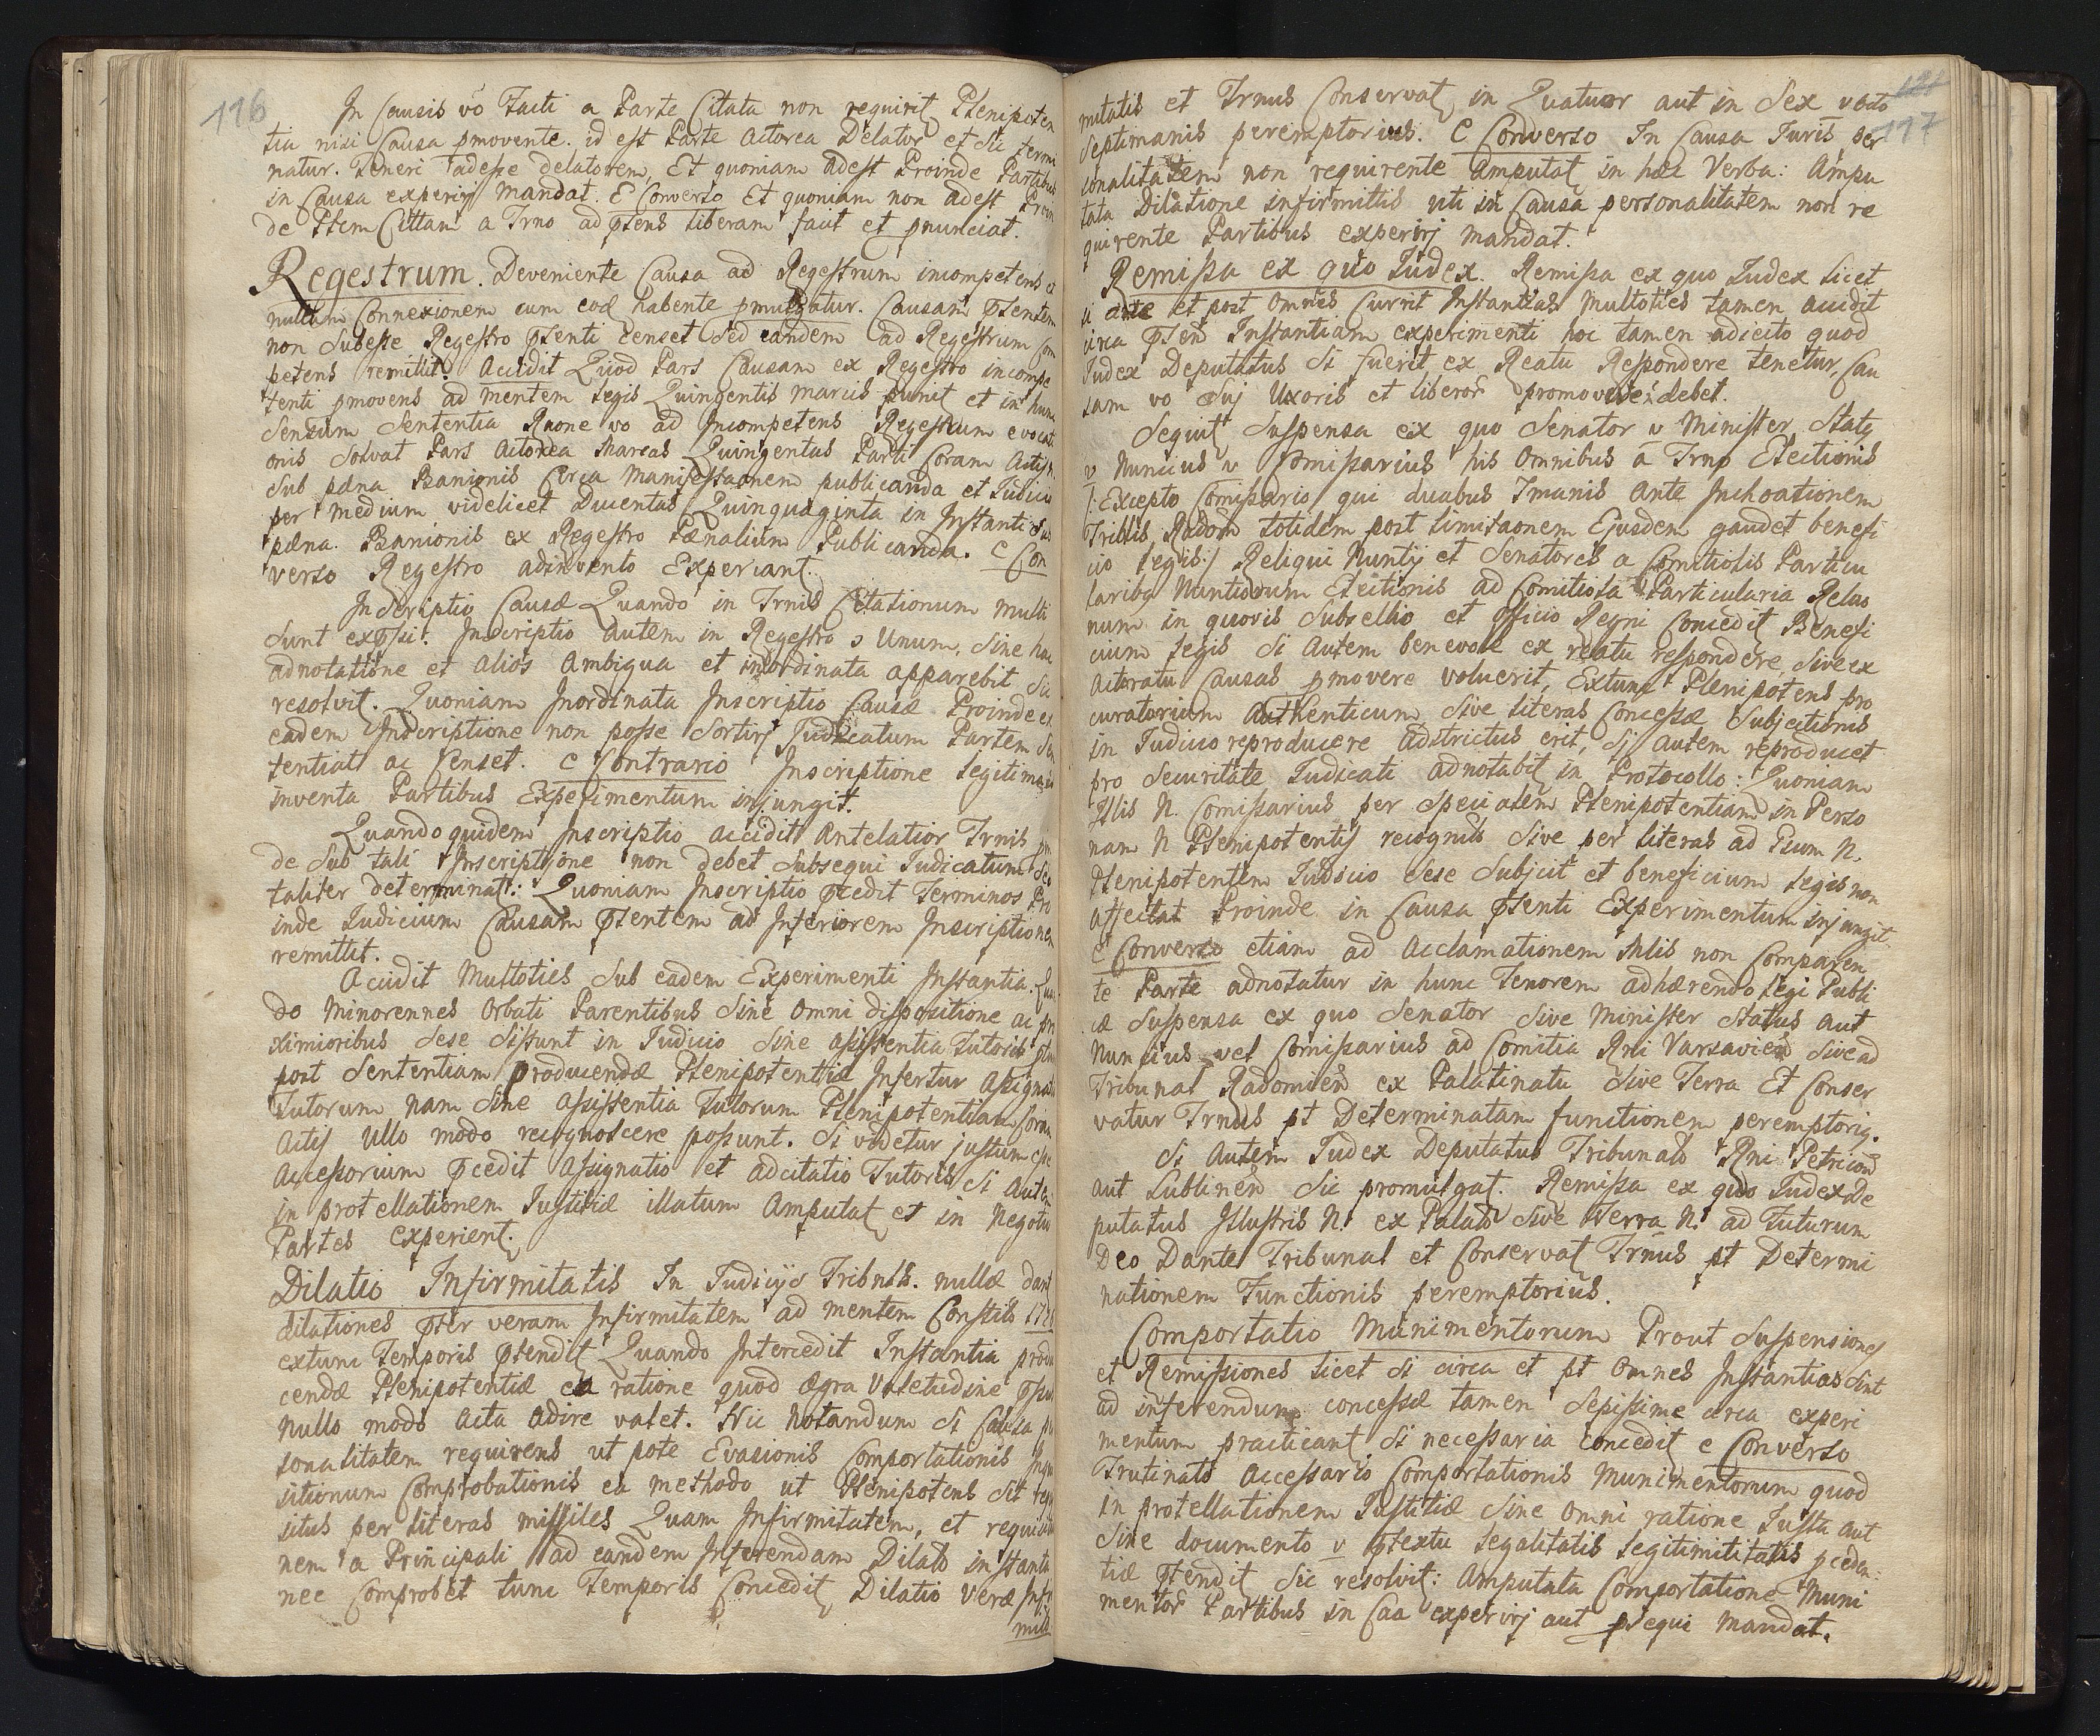 116
In Causis vo Facti a Parte Citata non requirit Plenipoten
tia nisi Causa pmovente. id est Parte Actorea Delator et Sic termi
natur. Teneri adesse delatorem, Et quoniam adest Proinde Partibus
in Causa experirj mandat. E Converso Et quoniam non adest Proin
de Ptem Cittam a Trno ad ptens liberam facit et pnunciat.
Regestrum. Deveniente Causa ad Regestrum incompetens et
nullam Connexionem cum eod habente pmulgatur. Causam ptentem
non Subesse Regestro ptenti censet Sed eandem ad Regestrum Com
petens remittit. Accidit Quod Pars Causam ex Regestro incompe
tenti pmovens ad mentem legis Quingentis marcis punit et in hunc
Sensum Sententia Raone vo ad Incompetens Regestrum evocati
onis Solvat Pars Actorea Marcas Quingentas Parti Coram Actis
Sub pæna Banionis Circa Manifestaonem publicanda et Judicio
per medium videlicet Ducentas Quinquaginta in Instanti Sub
pæna Banionis ex Regestro Pænalium Publicanda. E Con
verso Regestro adinvento Experiant.
Inscriptio Causæ Quando in Trnis Citationum multi
Sunt expssi. Inscriptio autem in Regestro Unum, Sine hac
adnotatione et alios Ambigua et inordinata apparebit Sic
resolvit. Quoniam Inordinata Inscriptio Causæ Proinde ex
eadem Inscriptione non posse Sortirj Judicatum Partem Sen
tentiat ac Censet. E Contrario Inscriptione legitima
inventa Partibus Experimentum injungit.
Quandoquidem Inscriptio accidit Antelatior Trnis
de Sub tali Inscriptione non debet Subsequi Judicatum Sed
taliter determinat: Quoniam Inscriptio pcedit Terminos Pro
inde Judicium Causam ptentem ad Inferiorem Inscriptionem
remittit.
Accidit Multoties Sub eadem Experimenti Instantia. Quan
do Minorennes Orbati Parentibus Sine Omni dispositione ac pro
ximioribus Sese Sistunt in Judicio Sine assistentia Tutoris
post Sententiam producendæ Plenipotentiæ Infertur Assignatio
Tutorum nam Sine assistentia Tutorum Plenipotentiam Coram
Actis Ullo modo recognoscere possunt. Si videtur justum esse
Accessorium pcedit Assignatio et adcitatio Tutoris Si autem
in protellationem Justitiæ illatum Amputat et in Negotio
Partes Experient.
Dilatio Infirmitatis In Judicijs Tribnlis. nullæ dant
dilationes pter veram Infirmitatem ad mentem Constis 172
extunc Temporis ptendit Quando Intercedit Instantia produ
cendæ Plenipotentiæ ea ratione quod ægra Valetudine
nullo modo Acta Adire valet. Hic Notandum Si Causa per
sonalitatem requirens ut pote Evasionis Comportationis Inqui
sitionum Comprobationis ea methodo ut Plenipotens Sit requi
situs per literas missiles Quam Infirmitatem, et requisitio
nem a Principali ad eandem Inferendam Dilats instanti
nec Comprobet tunc Temporis Concedit Dilatio Veræ Infi
mita
117
mitatis et Trnus Conservat in Quatuor aut in Sex v octo
Septimanis peremptorius. E Converso In Causa Juris per
sonalitatem non requirente Amputat in hæc Verba: Ampu
tata Dilatione infirmittis uti in Causa personalitatem non re
quirente Partibus experirj mandat.
Remissa ex quo Judex. Remissa ex quo Judex licet
si ante et post Omnes Currit Instantias Multoties tamen accidit
circa pten Instantiam experimenti hoc tamen adjecto quod
Judex Deputatus Si fuerit ex Reatu Respondere tenetur, Cau
sam vo Suj Uxoris et liberor promovere debet.
Sequit Suspensa ex quo Senator v Minister Status
v Nuncius v Comissarius his Omnibus a Trno Electionis
/: Excepto Comissario qui duabus 7manis Ante Inchoationem
Triblis Radom totidem post limitaonem Ejusdem gaudet benefi
cio legis:/ Reliqui Nuntij et Senatores a Comitiolis Particu
laribus Nuntiorum Electionis ad Comitiola Particularia Relao
num in quovis Subsellio et Officio Regni Concedit Benefi
cium legis Si Autem benevole ex reatu respondere, Sive ex
Actoratu Causas pmovere voluerit, Extunc Plenipotens pro
curatorium Authenticum Sive literas Concessæ Subjectionis
in Judicio reproducere adstrictus erit, Si autem reproducet
pro Securitate Judicati adnotabit in Protocollo: Quoniam
Illis N. Comissarius per Specialem Plenipotentiam in Perso
nam N Plenipotentis recognits Sive per literas ad Psum N.
Plenipotentem Judicio Sese Subjicit et beneficium legis non
affectat Proinde in Causa ptenti Experimentum injungit.
E Converso etiam ad Acclamationem Mlis non Comparen
te Parte adnotatur in hunc Tenorem adhærendo legi Publi
cæ Suspensa ex quo Senator Sive Minister Status aut
Nuncius vel Comissarius ad Comitia Rni Varsavien Sive ad
Tribunal Radomien ex Palatinatu Sive Terra Et Conser
vatur Trnus pt Determinatam functionem peremptorig.
Si Autem Judex Deputatus Tribunals Rni Petricov
aut Lublinen Sic promulgat. Remissa ex quo Judex De
putatus Illustris N. ex Palats Sive Terra N. ad Futurum
Deo Dante Tribunal et Conservat Trnus pt Determi
nationem Functionis peremptorius.
Comportatio Munimentorum Prout Suspensiones
et Remissiones licet Si circa et pt Omnes Instantias Sint
ad inferendum concessæ tamen Sepissime circa experi
mentum practicant Si necessaria concedit e Converso
Trutinato Accessorio Comportationis Munimentorum quod
in protellationem Justitiæ Sine Omni ratione Justa aut
Sine documento v ptextu legalitatis legitimitatis pceden:
tiæ ptendit Sic resolvit: Amputata Comportatione Muni
mentor Partibus in Caa experirj aut psequi Mandat.